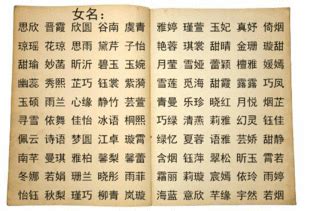 女名:
思欣 晋霞 欣圆 谷南 虞青
琼瑶 花琼 思雨 黛芹 子怡
甜瑜 妙菡 昕沂 碧玉 玉婉
幽蕊 秀熙 芷巧 钰棠 紫漪
玉硕 雨兰 心缘 静竹 芸萱
寻雪 依舞 佳怡 冰语 桐熙
佩云 诗语 梦圆 江卓 璇霄
南芊 曼琪 雅柏 馨梨 馨蕾
冬娜 若娟 珊兰 晓彤 雨菲
怡钰 秋梨 瑾巧 柳青 岚璇
雅婷 瑾萱 玉妃 真妤 倚烟
艳蓉 琪裳 甜晴 金珊 璇甜
月莹 雪娅 蕾颖 檀雅 媛嫣
雪莲 觅海 甜霞 露露 巧凤
青曼 乐珍 晓红 月悦 烟芷
巧绿 清燕 莉雅 幻灵 钰佳
绿忆 夏蓉 语雅 芸娇 甜静
含烟 钰萍 翠松 昕玉 霄若
霜丽 莉璇 宸嫣 依玲 雨婷
海蓝 意欣 芊缘 宇然 若烟